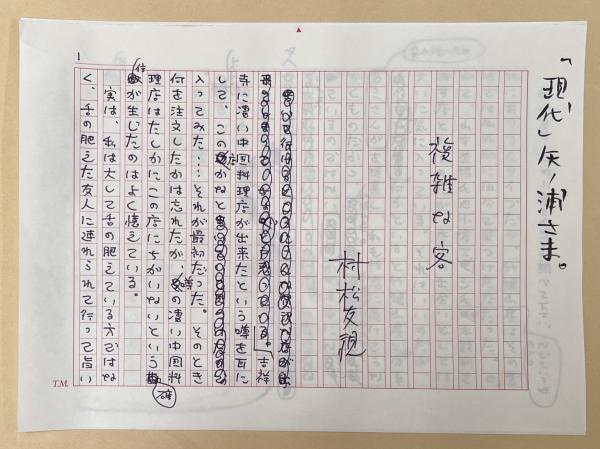 「現代」矢ノ浦さま。
1
複雑な客
村松友視
吉祥
寺に凄い中国料理店が出来たという噂を耳に
して、この店かなと
入ってみた……それが最初だった。そのとき
何を注文したかは忘れたが、噂の凄い中国料
理店はたしかにこの店にちがいないという確
信が生じたのはよく憶えている。
実は、私は大して舌の肥えている方ではな
く、舌の肥えた友人に連れられて行って旨い
T.M.